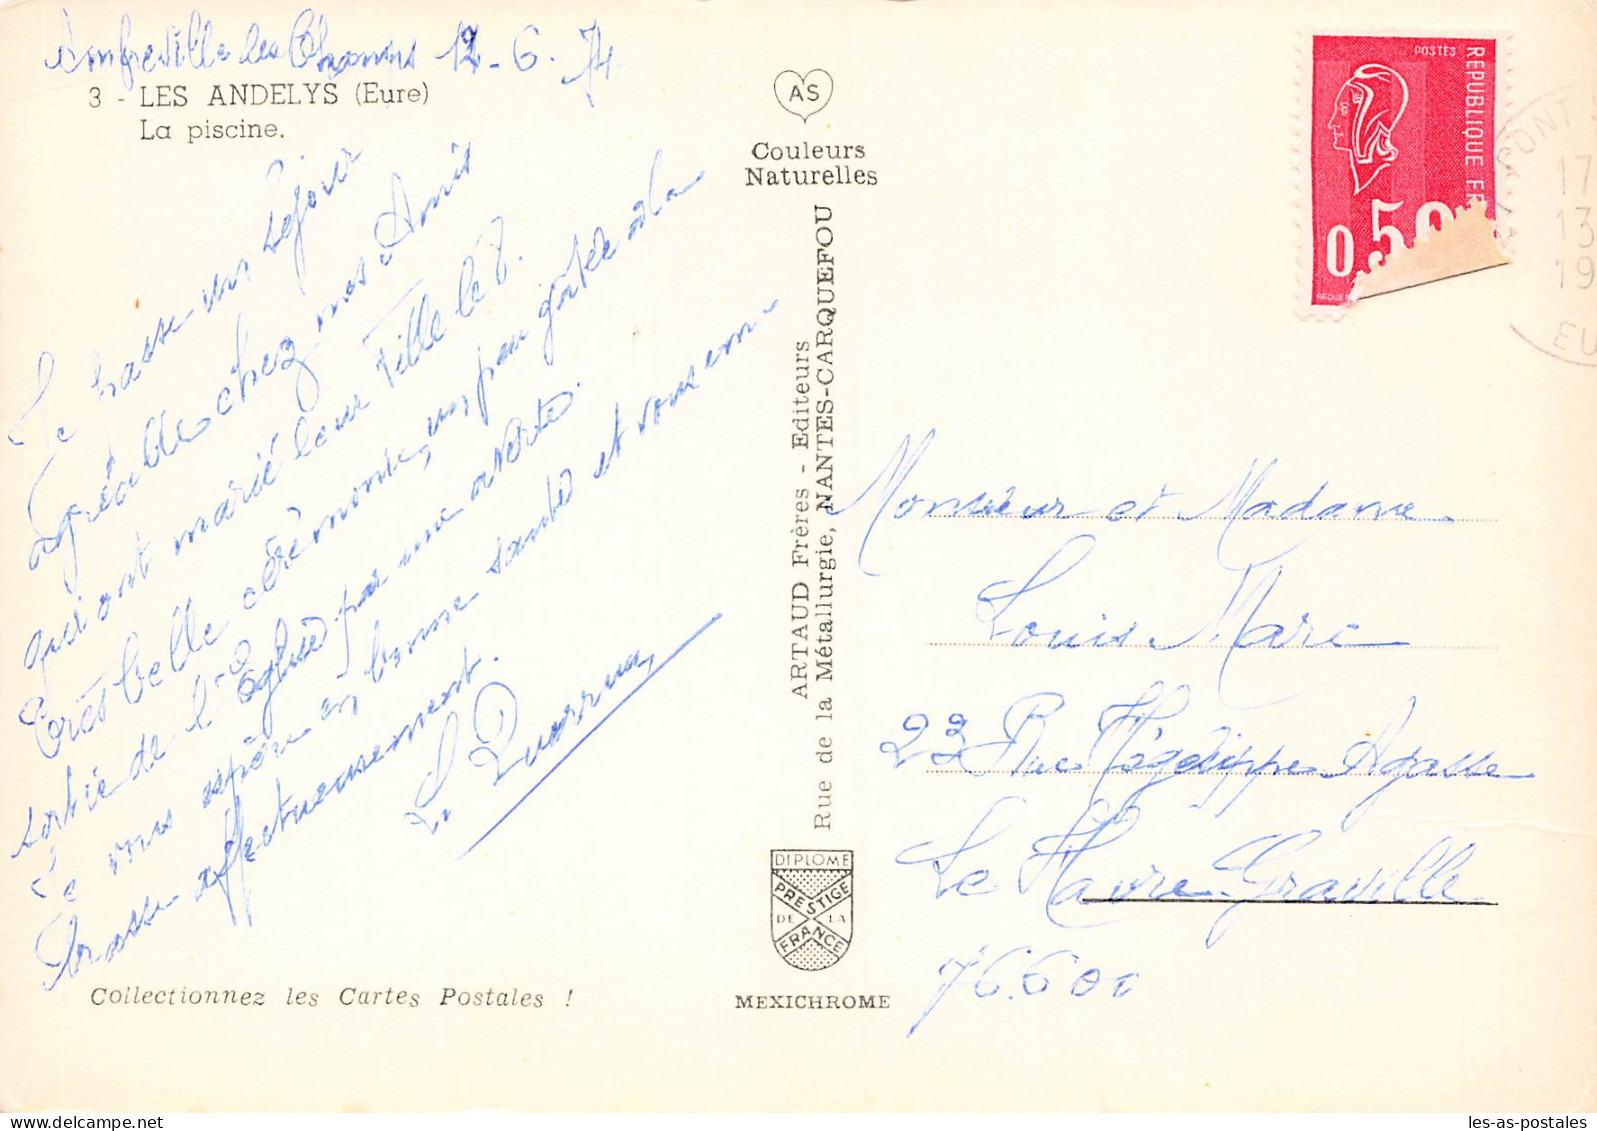 Amfreville les Champs 12-6.74
3 - LES ANDELYS (Eure)
La piscine.
Je passe un séjour
agréable chez mes Amis
qui ont marié leur Fille le 8.
très belle cérémonie, un peu gâtée à la
sortie de l'Eglise par une averse.
Je vous espère en bonne santé et vous em-
brasse affectueusement.
AS
Couleurs
Naturelles
ARTAUD Frères - Editeurs
Rue de la Métallurgie, NANTES-CARQUEFOU
DIPLOME
PRESTIGE
DE LA
FRANCE
MEXICHROME
Collectionnez les Cartes Postales !
POSTES
REPUBLIQUE FR
0,50
PONT
17
13
19
EU
Monsieur et Madame
Louis Marc
23 Rue Hégésippe Agasse
Le Havre-Graville
76.600
les-as-postales